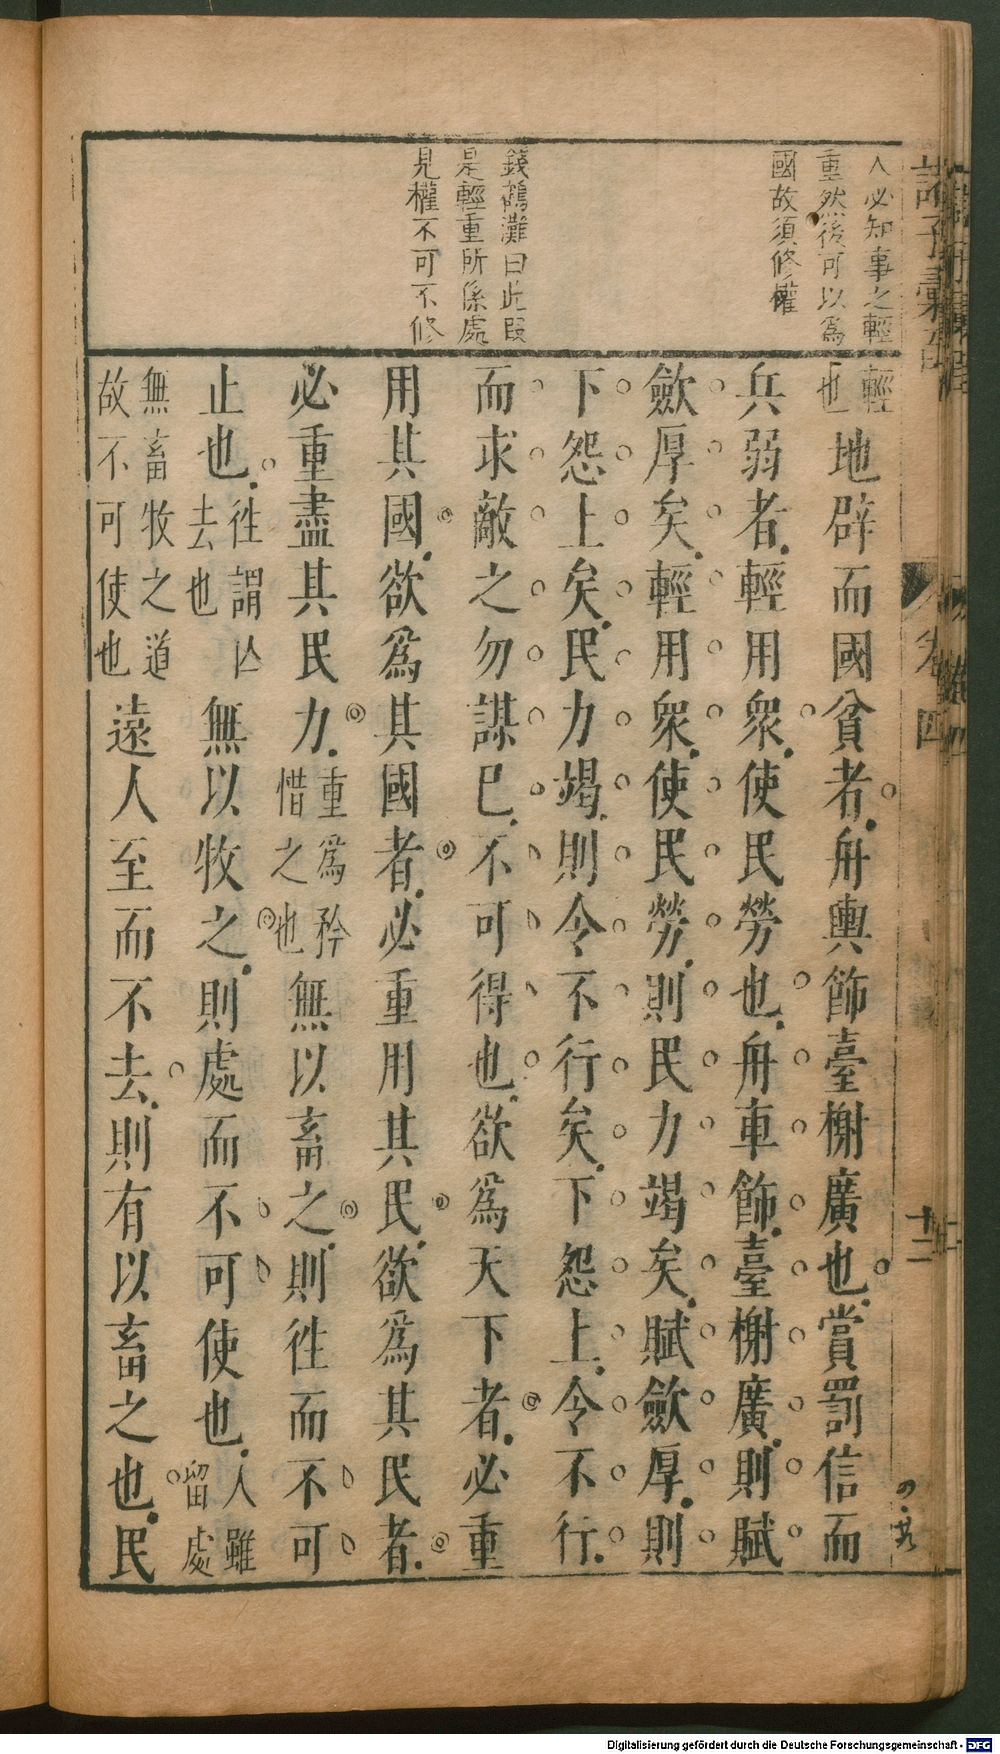 人必知事之輕
重然後可以爲
國故須修權
錢鶴灘曰此叚
是輕重所係處
見權不可不修
輕
也
地辟而國貧者舟輿飾臺榭廣也賞罰信而
兵弱者輕用衆使民勞也舟車飾臺榭廣則賦
歛厚矣輕用衆使民勞則民力竭矣賦歛厚則
下怨上矣民力竭則令不行矣下怨上令不行
而求敵之勿謀巳不可得也欲爲天下者必重
用其國欲爲其國者必重用其民欲爲其民者
必重盡其民力
重爲矜
惜之也
無以畜之則徃而不可
止也
徃謂亾
去也
無以牧之則處而不可使也
人雖
留處
無畜牧之道
故不可使也
遠人至而不去則有以畜之也民
卷四
十二
Digitalisierung gefördert durch die Deutsche Forschungsgemeinschaft - DFG